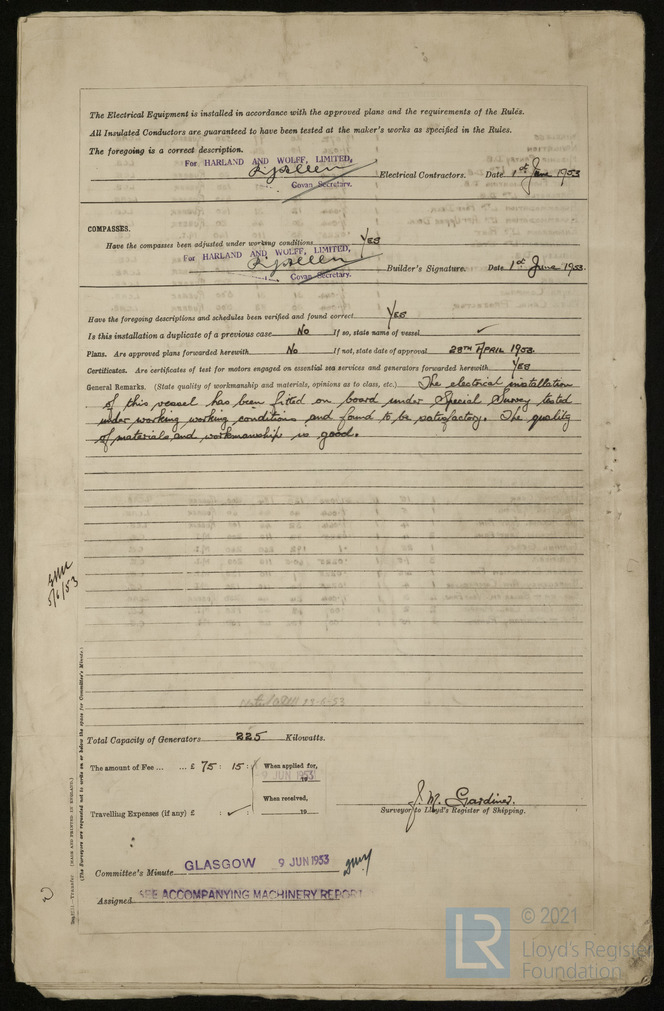 The Electrical Equipment is installed in accordance with the approved plans and the requirements of the Rules.
All Insulated Conductors are guaranteed to have been tested at the maker's works as specified in the Rules.
The foregoing is a correct description.
For HARLAND AND WOLFF, LIMITED,
Electrical Contractors. Date 1st June 1953
Govan Secretary.
COMPASSES.
Have the compasses been adjusted under working conditions Yes
For HARLAND AND WOLFF, LIMITED,
Builder's Signature. Date 1st June 1953.
Govan Secretary.
Have the foregoing descriptions and schedules been verified and found correct Yes
Is this installation a duplicate of a previous case No If so, state name of vessel ✓
Plans. Are approved plans forwarded herewith No If not, state date of approval 28TH APRIL 1953.
Certificates. Are certificates of test for motors engaged on essential sea services and generators forwarded herewith Yes
General Remarks. (State quality of workmanship and materials, opinions as to class, etc.) The electrical installation
of this vessel has been fitted on board under Special Survey tested
under working working conditions and found to be satisfactory. The quality
of materials and workmanship is good.
5/6/53
Total Capacity of Generators 225 Kilowatts.
The amount of Fee ... ... £ 75 : 15 : When applied for,
9 JUN 1953
19
When received,
Travelling Expenses (if any) £ : ✓ : 19
J. M. Gardiner.
Surveyor to Lloyd's Register of Shipping.
Committee's Minute GLASGOW 9 JUN 1953
Assigned SEE ACCOMPANYING MACHINERY REPORT
(MADE AND PRINTED IN ENGLAND.)
(The Surveyors are requested not to write on or below the space for Committee's Minute.)
LR
© 2021
Lloyd's Register
Foundation